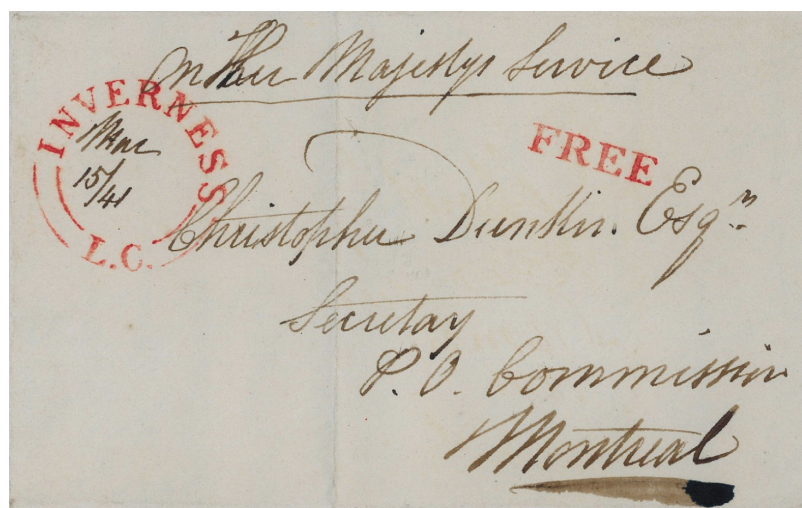 On Her Majestys Service
INVERNESS
Mar
15/41
L.C.
FREE
Christopher Dunkin. Esqr.
Secretay
P. O. Commission
Montreal